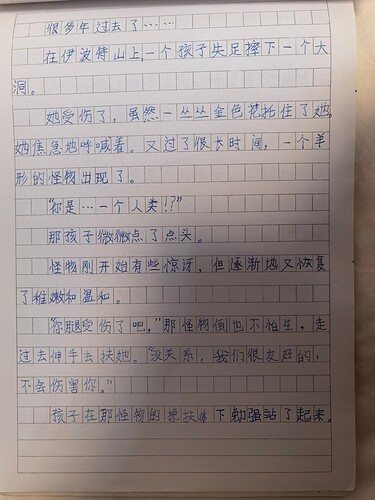 很多年过去了……
在伊波特山上,一个孩子失足摔下一个大
洞。
她受伤了,虽然一丛丛金色花托住了她。
她焦急地呼喊着。又过了很长时间,一个羊
形的怪物出现了。
"你是…一个人类!?"
那孩子微微点了点头。
怪物刚开始有些惊讶,但逐渐地又恢复
了稚嫩和温和。
"你腿受伤了吧,"那怪物倒也不怕生,走
过去伸手去扶她。"没关系,我们很友好的,
不会伤害你。"
孩子在那怪物的搀扶下勉强站了起来。